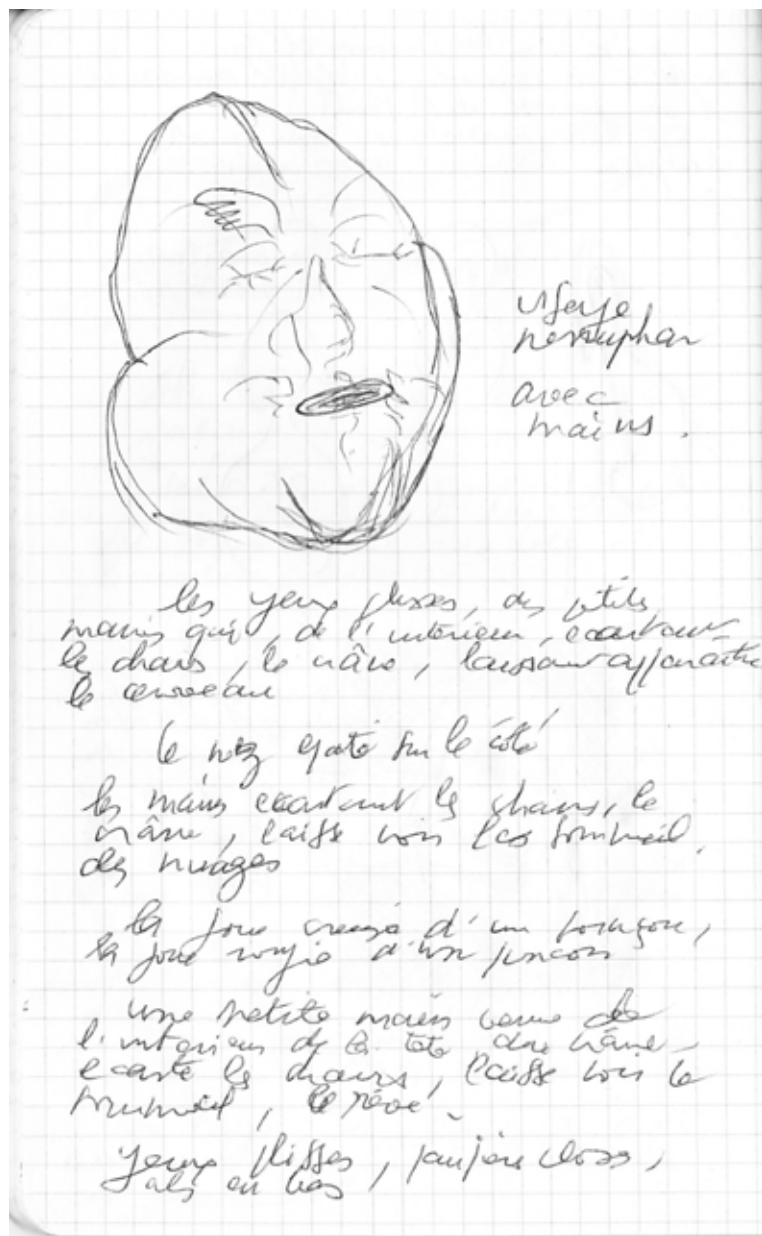 visage
nénuphar
avec
mains.
les yeux plissés, des petites
mains qui, de l'intérieur, écartent
les chairs, le crâne, laissant apparaître
le cerveau
le nez épaté sur le côté
les mains écartant les chairs, le
crâne, laisse voir les sommeil,
des nuages
la joue creusée d'un
la joue rougie d'un
une petite main venue de
l'intérieur de la tête du crâne
écarte les chairs, laisse voir le
sommeil, le rêve
yeux plissés, paupière closes,
en bas